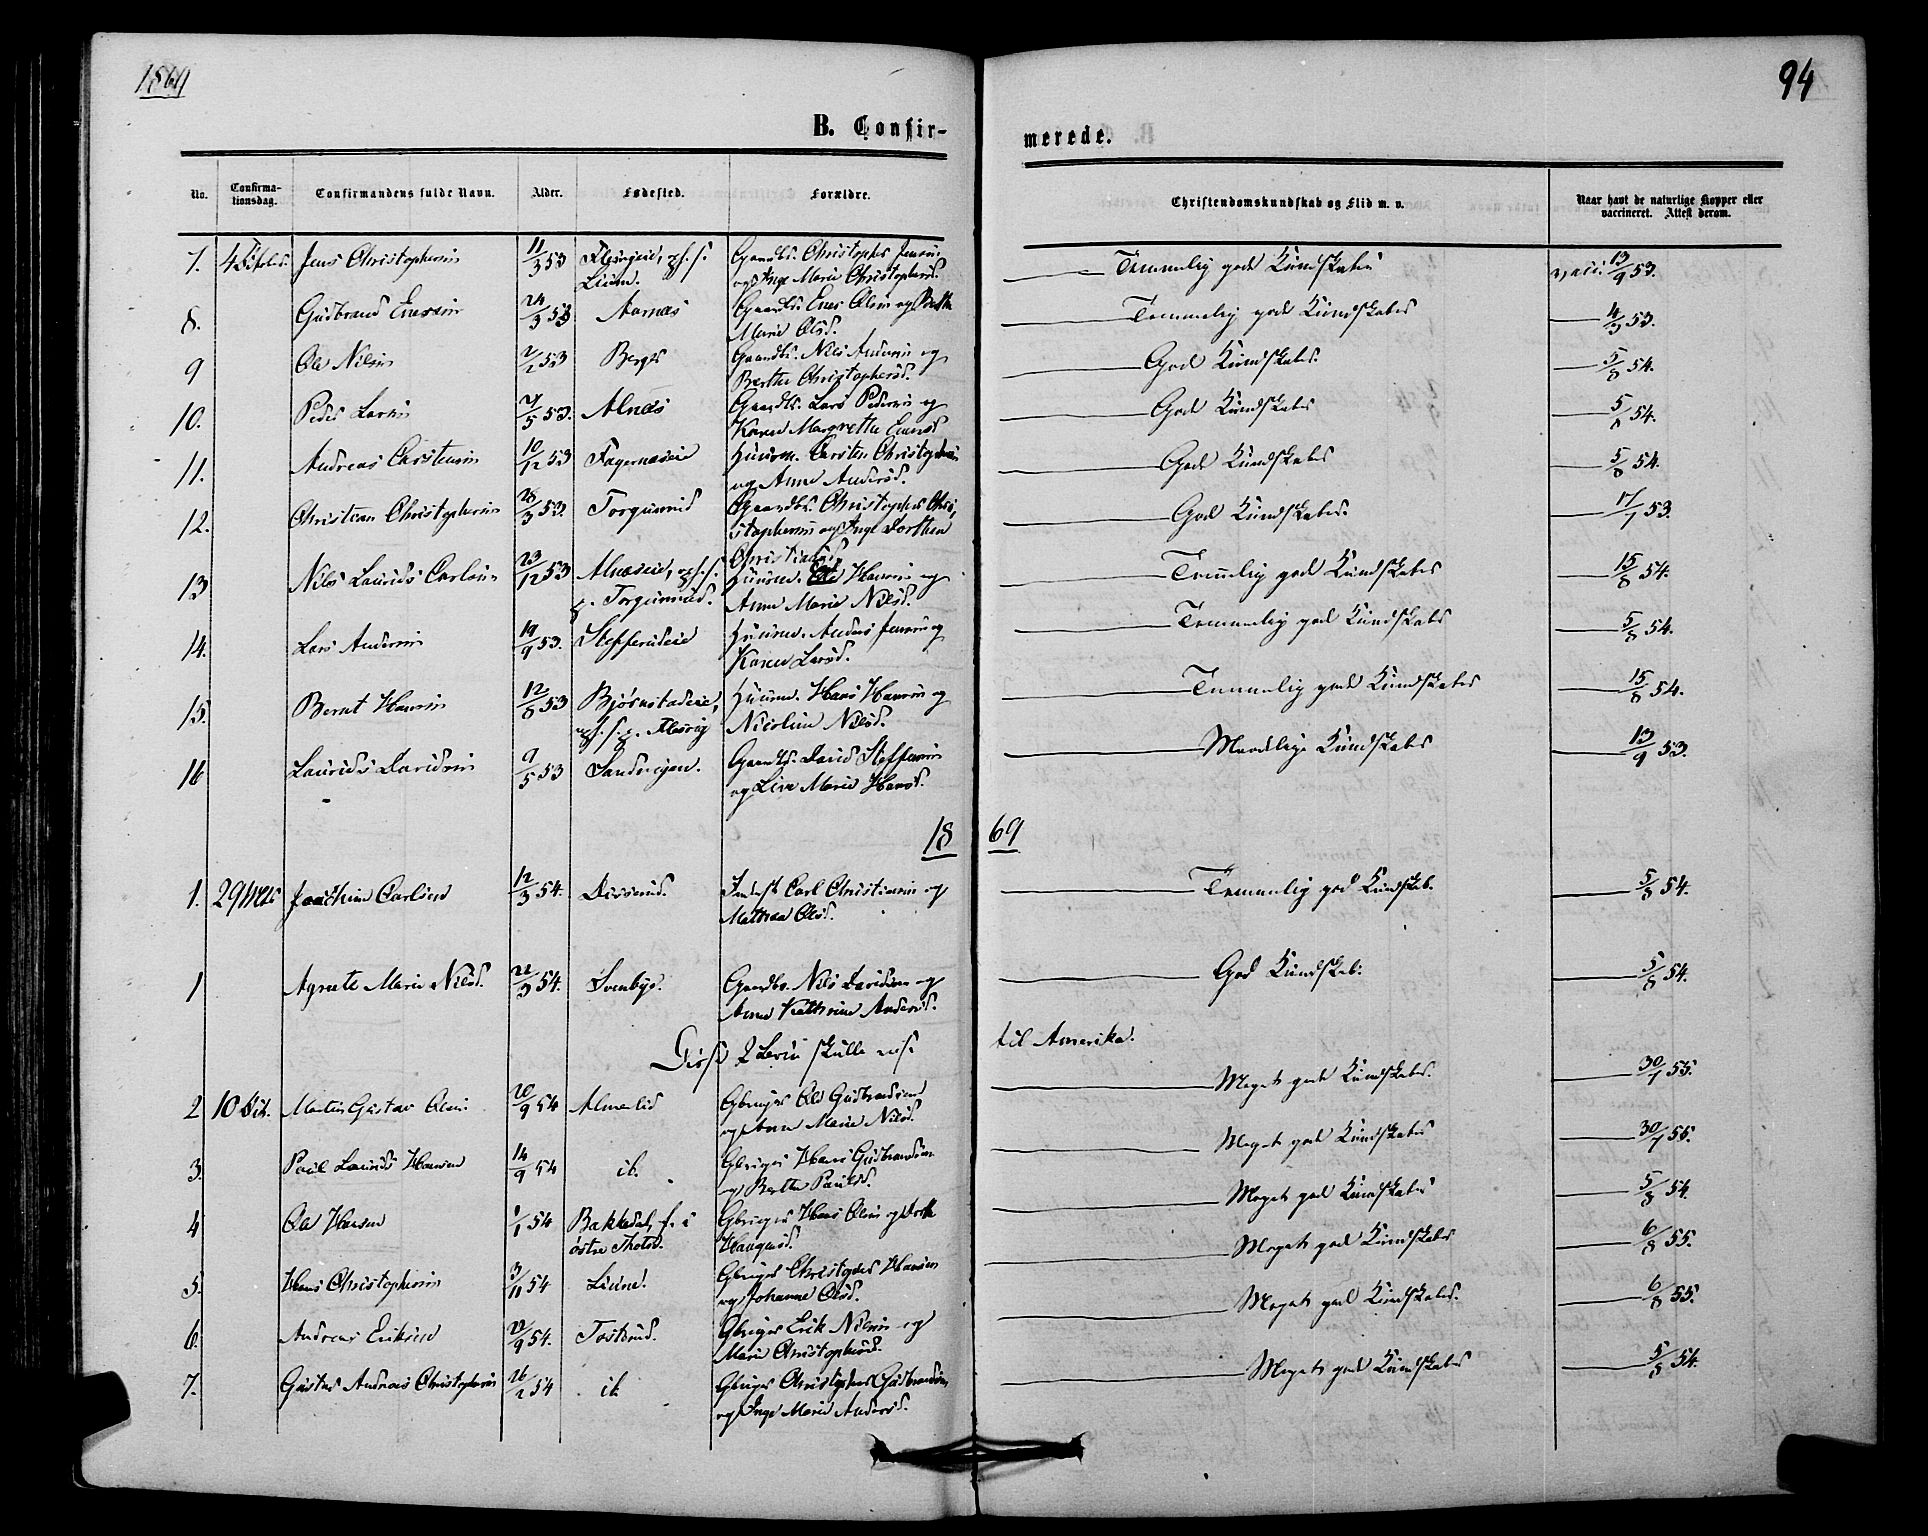 1869
94
B. Confir-
merede.
No.
Confirma-
tionsdag.
Confirmandens fulde Navn.
Alder.
Fødested.
Forældre.
Christendomskundskab og Flid m. v.
Naar havt de naturlige Kopper eller
vaccineret. Attest derom.
7. Jens Christophersen 11/3 53 Gaardbr. Christopher Jensen
og Inge Marie Christophersd. Temmelig god Kundskaber vacc. 13/9 53.
8. Gudbrand Enersen 24/3 53 Aarnæs Gaardbr. Ener Olsen og Berthe
Marie Olsd. Temmelig gode Kundskaber 53.
9 Ole Nilsen 2/2 53 Berger Gaardbr. Nils Andersen og
Berthe Christophersd. Gode Kundskaber. 5/8 54.
10. Peder Larsen 5 53. Alnæs Gaardbr. Lars Pedersen og
Karen Margrethe Enersd Gode Kundskaber 5/8 54.
11. Andreas Carstensen 10/12 53 Fagernæseie Huusm. Carsten Christophersen
og Anne Andersd. Gode Kundskaber 5/8 54.
12. Christian Christophersen 28/3 53. Torgunrud Gaardbr. Christopher Chri-
stophersen og Inge Dorthea
Gode Kundskaber. 17/1 53.
13 Nils Laurids Carlsen 23/12 53 Alnæseie,
Torgunrud. Huusm. Hansen og
Anne Marie Nilsd. Temmelig gode Kundskaber 15/8 54.
14. Lars Andersen 19/9 53. Huusm. Anders Jensen og
Karen Larsd. Temmelig gode Kundskaber 5/8 54.
15. Bernt Hansen 12/8 53 Bjørnstadeie,
Huusm. Hans Hansen og
Nicoline Nilsd. Temmelig gode Kundskaber 15/8 54.
16 Laurids Davidsen 9/5 53 Sandvigen. Gaardbr. David Steffensen
og Live Marie Hansd. Maadelige Kundskaber 13/9 53.
18 69
1. Joachim Carlsen 12/3 54. Carl Christiansen og
Mathea Olsd. Temmelig god Kundskab. 5/8 54.
1 Agnete Marie Nilsd. 22/3 54. Svenbye. Gaardbr. Nils Davidsen og
Anne Kathrine Andersd. God Kundskab. 5/8 54.
Disse 2 skulle reise til Amerika.
2 10 Martin Gustav Olsen 20/9 54 Gbruger Ole Gudbrandsen
og Anne Marie Nilsd. Meget gode Kundskaber. 30/1 55.
3. Paul Laurids Hansen 14/9 54 ib. Gbruger Hans Gudbrandsen
og Berthe Paulsd. Meget gode Kundskaber 30/1 55.
4 Ole Hansen 1/1 54 Bakkedal, f. i
østre Thoten. Gbruger Hans Olsen og
Haagensd. Meget gode Kundskaber 5/8 54.
5. Hans Christophersen 3/11 54 Gbruger Christopher Hansen
og Johanne Olsd. Meget gode Kundskaber 6/8 55.
6. Andreas Eriksen 9 54. Gbruger Erik Nilsen og
Marie Christophersd. Meget gode Kundskaber. 6/8 55.
7. Gustav Andreas Christophersen 26/2 54 ib Gbruger Christopher Gudbrandsen
og Inge Marie Andersd. Meget gode Kundskaber 5/8 54.